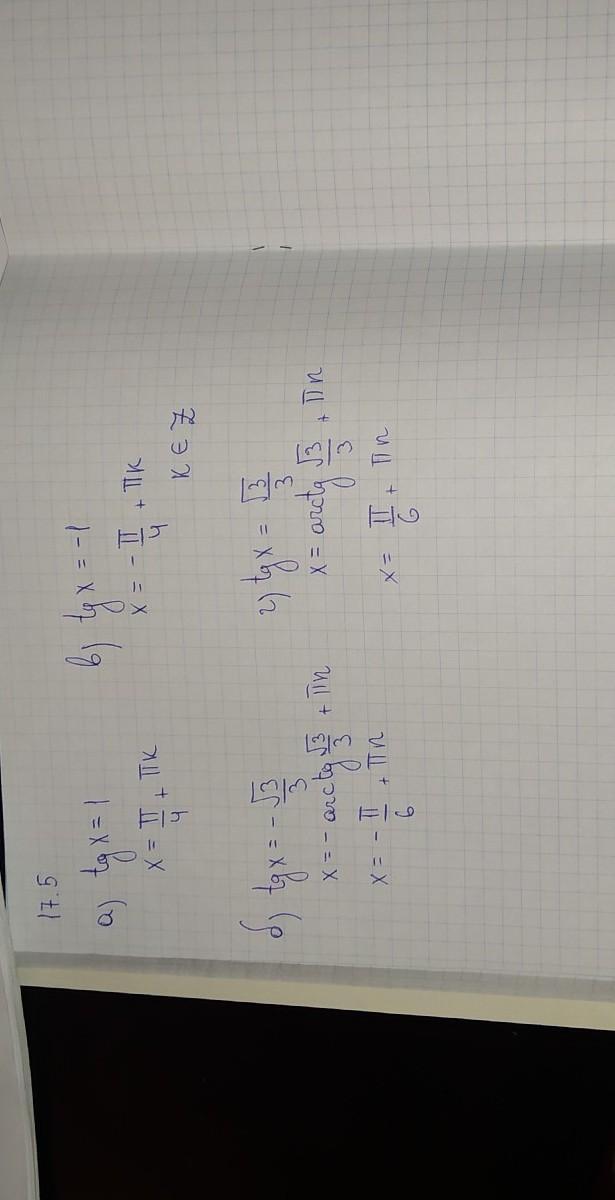 17.5
а) tg x = 1
x = π/4 + πk
в) tg x = -1
x = - π/4 + πk
k ∈ Z
б) tg x = - √3/3
x = - arctg √3/3 + πn
x = - π/6 + πn
г) tg x = √3/3
x = arctg √3/3 + πn
x = π/6 + πn